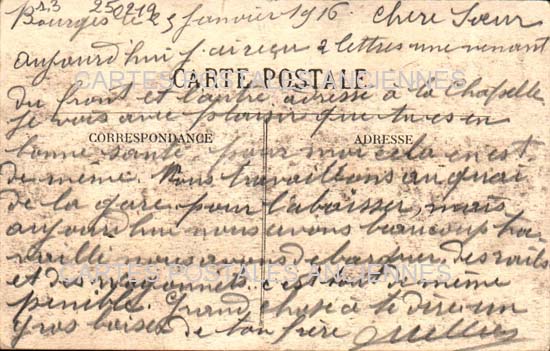 r.3 250219
Bourges le 5 Janvier 1916 Chere Soeur
aujourd'hui j'ai reçu 2 lettres une venant
CARTES POSTALES ANCIENNES
CARTE POSTALE
du front et l'autre adressé a la Chapelle
je vois avec plaisir que tu es en
CORRESPONDANCE ADRESSE
bonne santé pour moi cela en est
de même. Nous travaillons au quai
de la gare pour l'abaisser, mais
aujourd'hui nous avons beaucoup tra
vaillé nous avons debarquer des rails
CARTES POSTALES ANCIENNES
et des wagonnets c'est tout de même
penible. Grand chose a te dire un
gros baiser de ton frère